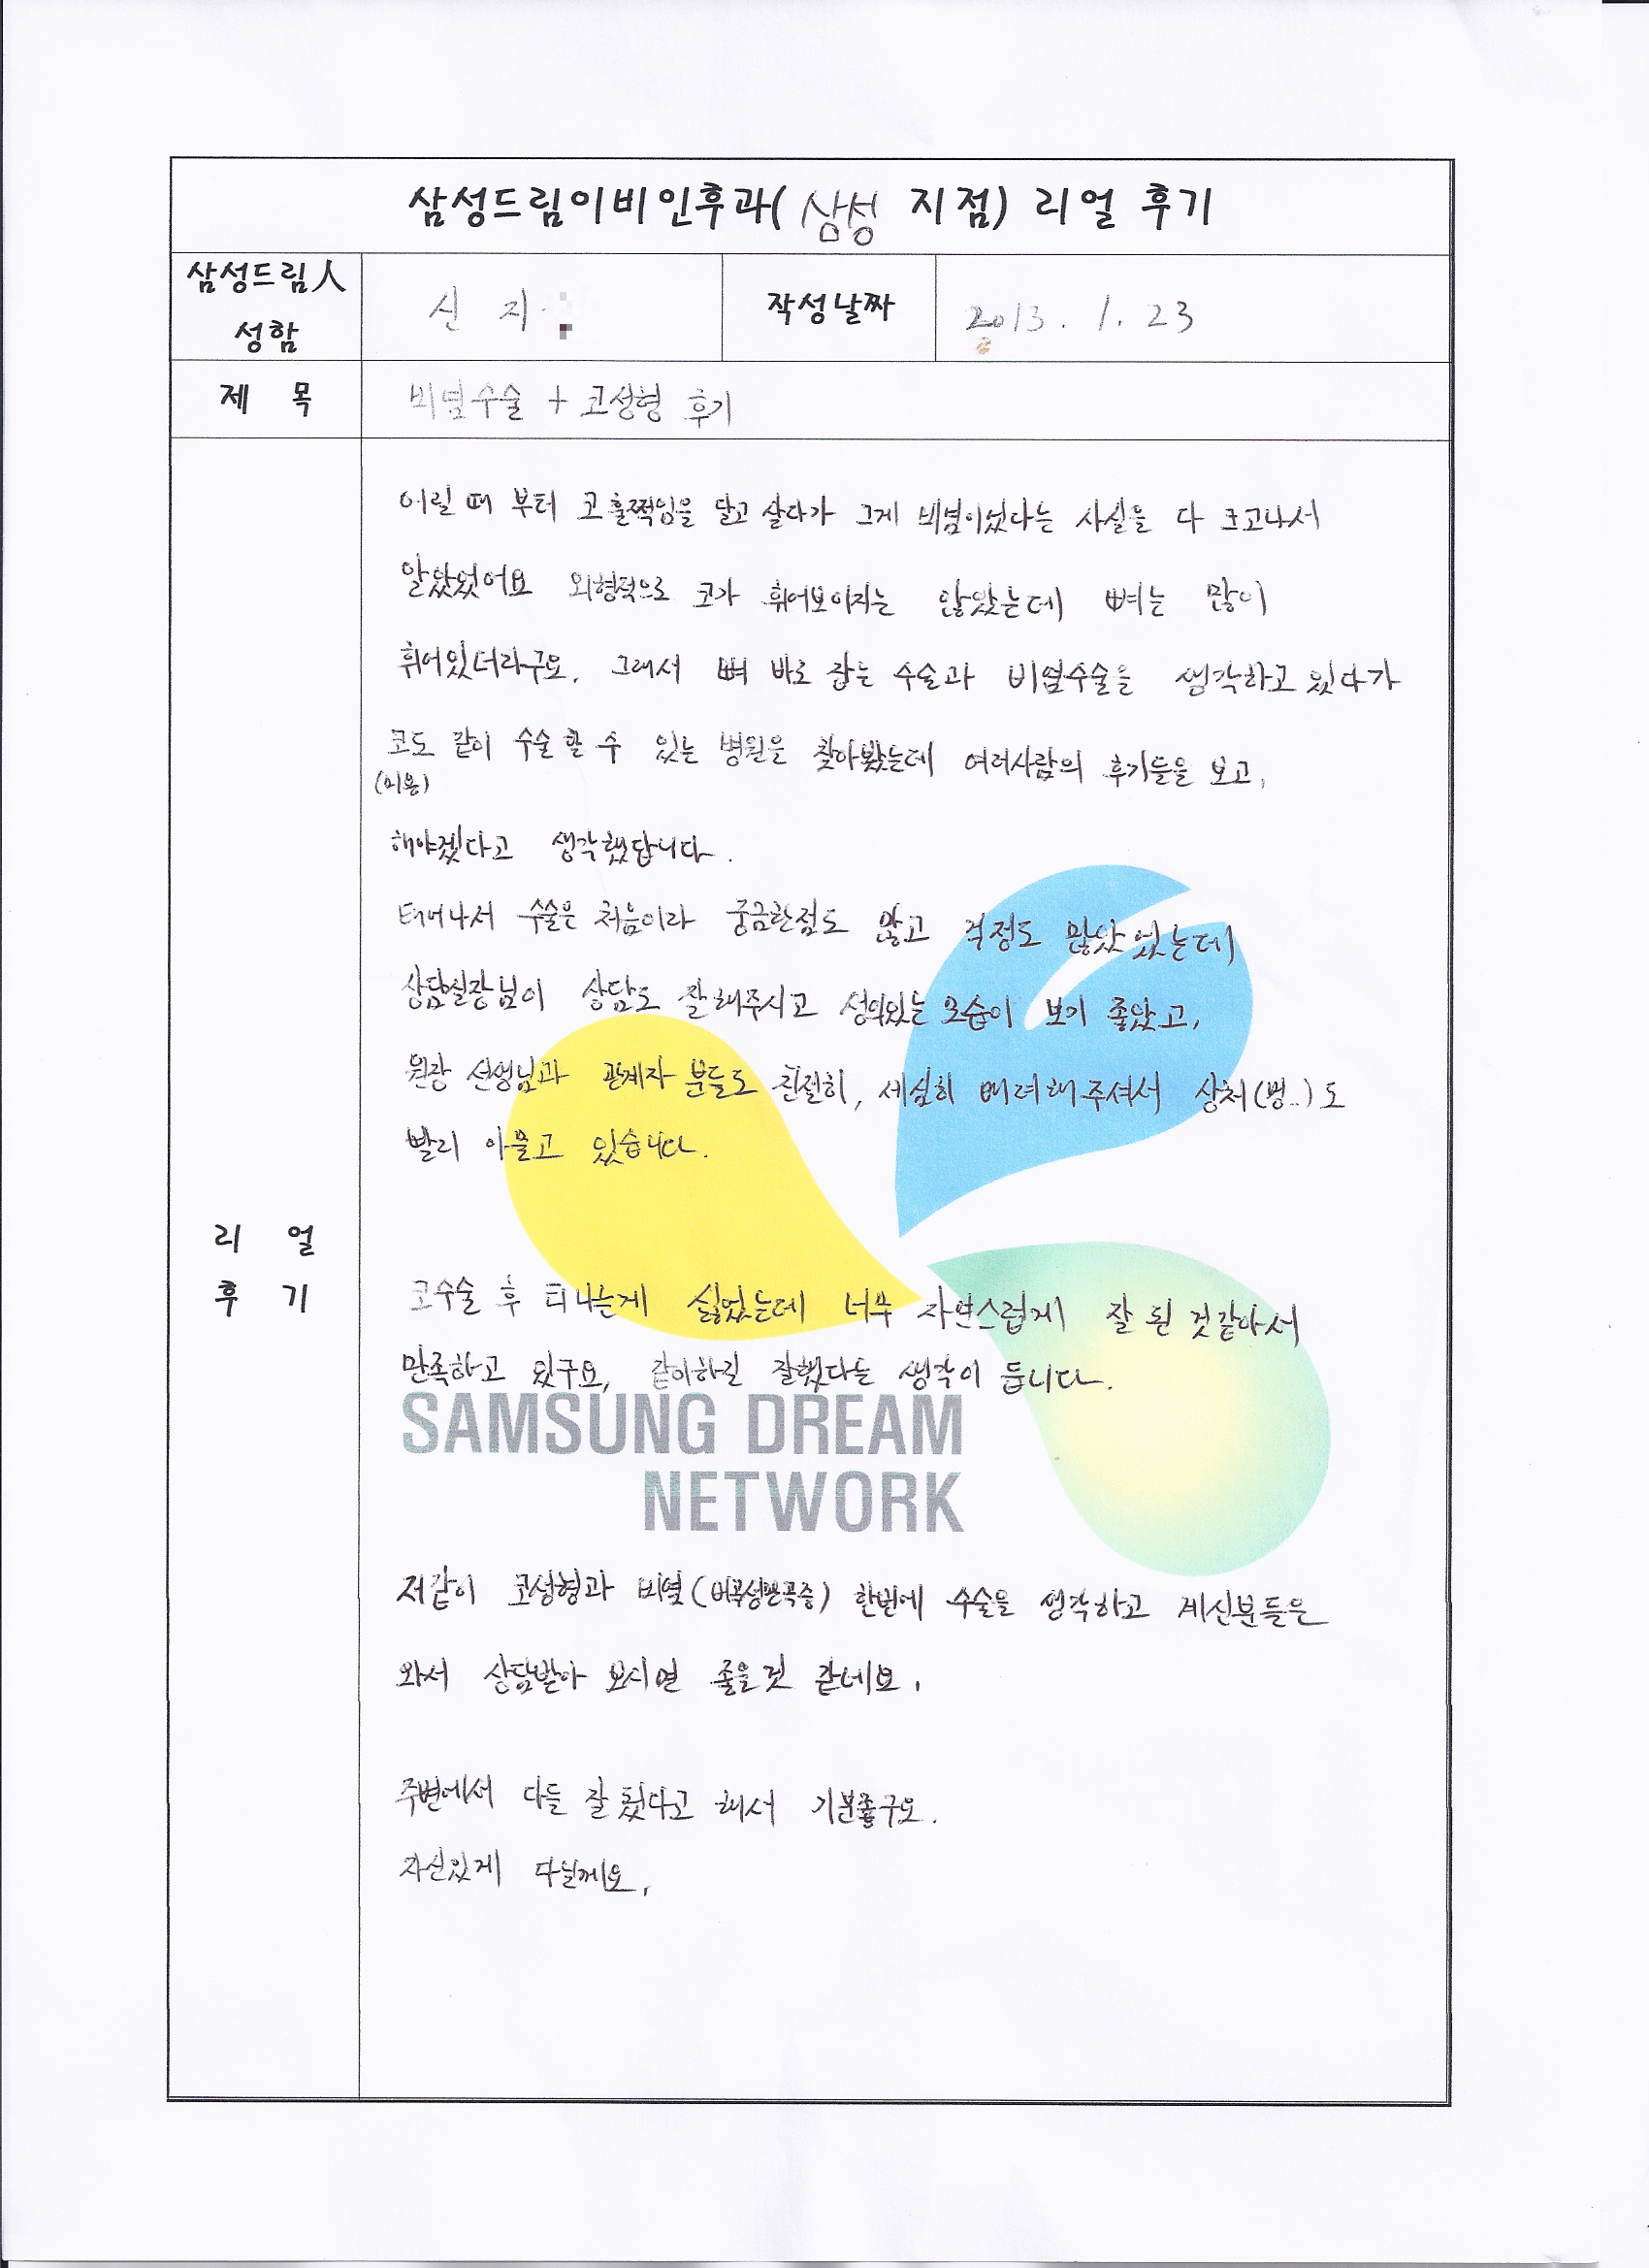 삼성드림이비인후과(삼성 지점) 리얼 후기
삼성드림人
성함
신 지
작성날짜
2013. 1. 23
제 목
비염수술 + 코성형 후기
어릴 때 부터 코 훌쩍임을 달고 살다가 그게 비염이었다는 사실을 다 크고나서
알았었어요 외형적으로 코가 휘어보이지는 않았는데 뼈는 많이
휘어있더라구요. 그래서 뼈 바로 잡는 수술과 비염수술을 생각하고 있다가
코도 같이 수술 할 수 있는 병원을 찾아봤는데 여러사람의 후기들을 보고,
(미용)
해야겠다고 생각했답니다.
태어나서 수술은 처음이라 궁금한점도 많고 걱정도 많았었는데
상담실장님이 상담도 잘해주시고 성의있는 모습이 보기 좋았고,
원장 선생님과 관계자 분들도 친절히, 세심히 배려해주셔서 상처(멍..)도
빨리 아물고 있습니다.
리 얼
후 기
코수술 후 티나는게 싫었는데 너무 자연스럽게 잘 된 것같아서
만족하고 있구요, 같이하길 잘했다는 생각이 듭니다.
SAMSUNG DREAM
NETWORK
저같이 코성형과 비염( ) 한번에 수술을 생각하고 계신분들은
와서 상담받아 보시면 좋을것 같네요.
주변에서 다들 잘 됐다고 해서 기분좋구요.
자신있게 다닐께요.